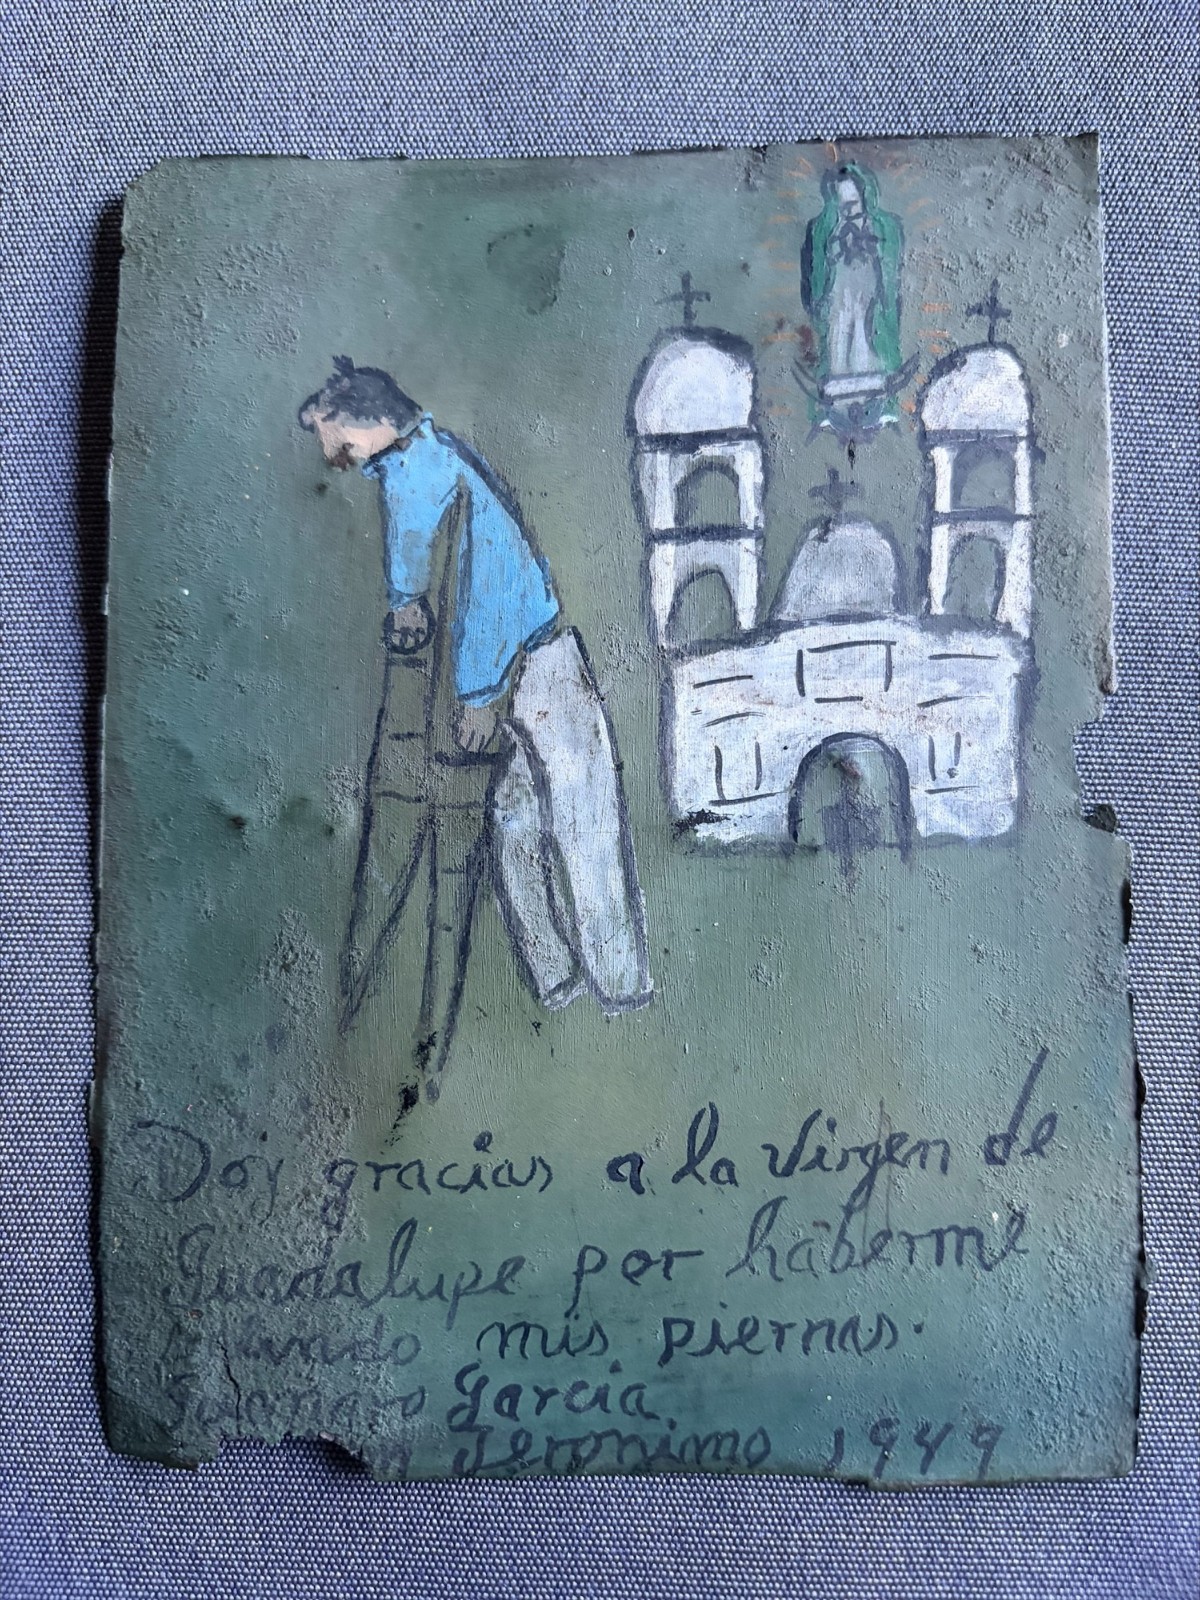 Doy gracias a la Virgen de
Guadalupe por haberme
mis piernas.
Garcia
Jeronimo 1949